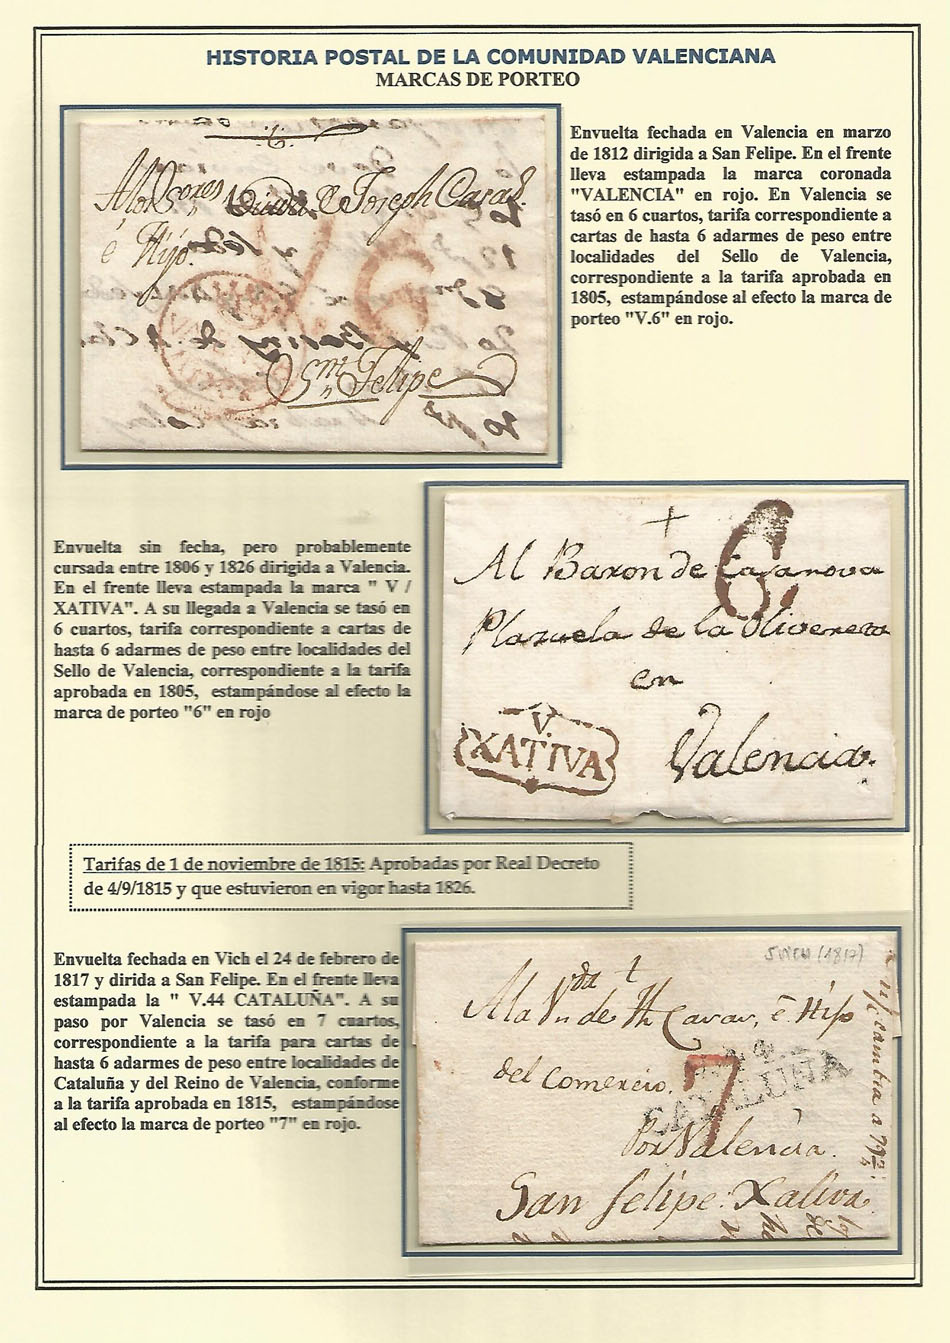 HISTORIA POSTAL DE LA COMUNIDAD VALENCIANA
MARCAS DE PORTEO
Envuelta fechada en Valencia en marzo
de 1812 dirigida a San Felipe. En el frente
lleva estampada la marca coronada
"VALENCIA" en rojo. En Valencia se
tasó en 6 cuartos, tarifa correspondiente a
cartas de hasta 6 adarmes de peso entre
localidades del Sello de Valencia,
correspondiente a la tarifa aprobada en
1805, estampándose al efecto la marca de
porteo "V.6" en rojo.
Viuda de Joseph Carau
é Hijo.
V6
Sn. Felipe
Envuelta sin fecha, pero probablemente
cursada entre 1806 y 1826 dirigida a Valencia.
En el frente lleva estampada la marca " V /
XATIVA". A su llegada a Valencia se tasó en
6 cuartos, tarifa correspondiente a cartas de
hasta 6 adarmes de peso entre localidades del
Sello de Valencia, correspondiente a la tarifa
aprobada en 1805, estampándose al efecto la
marca de porteo "6" en rojo
6
Al Baron de Casanova
Plazuela de la Olivereta
en
Valencia.
V
XATIVA
Tarifas de 1 de noviembre de 1815: Aprobadas por Real Decreto
de 4/9/1815 y que estuvieron en vigor hasta 1826.
Envuelta fechada en Vich el 24 de febrero de
1817 y dirida a San Felipe. En el frente lleva
estampada la " V.44 CATALUÑA". A su
paso por Valencia se tasó en 7 cuartos,
correspondiente a la tarifa para cartas de
hasta 6 adarmes de peso entre localidades de
Cataluña y del Reino de Valencia, conforme
a la tarifa aprobada en 1815, estampándose
al efecto la marca de porteo "7" en rojo.
(1817)
A la Vda de Carau, é Hijo
del Comercio.
7
CATALUÑA
Por Valencia.
San felipe. Xativa.